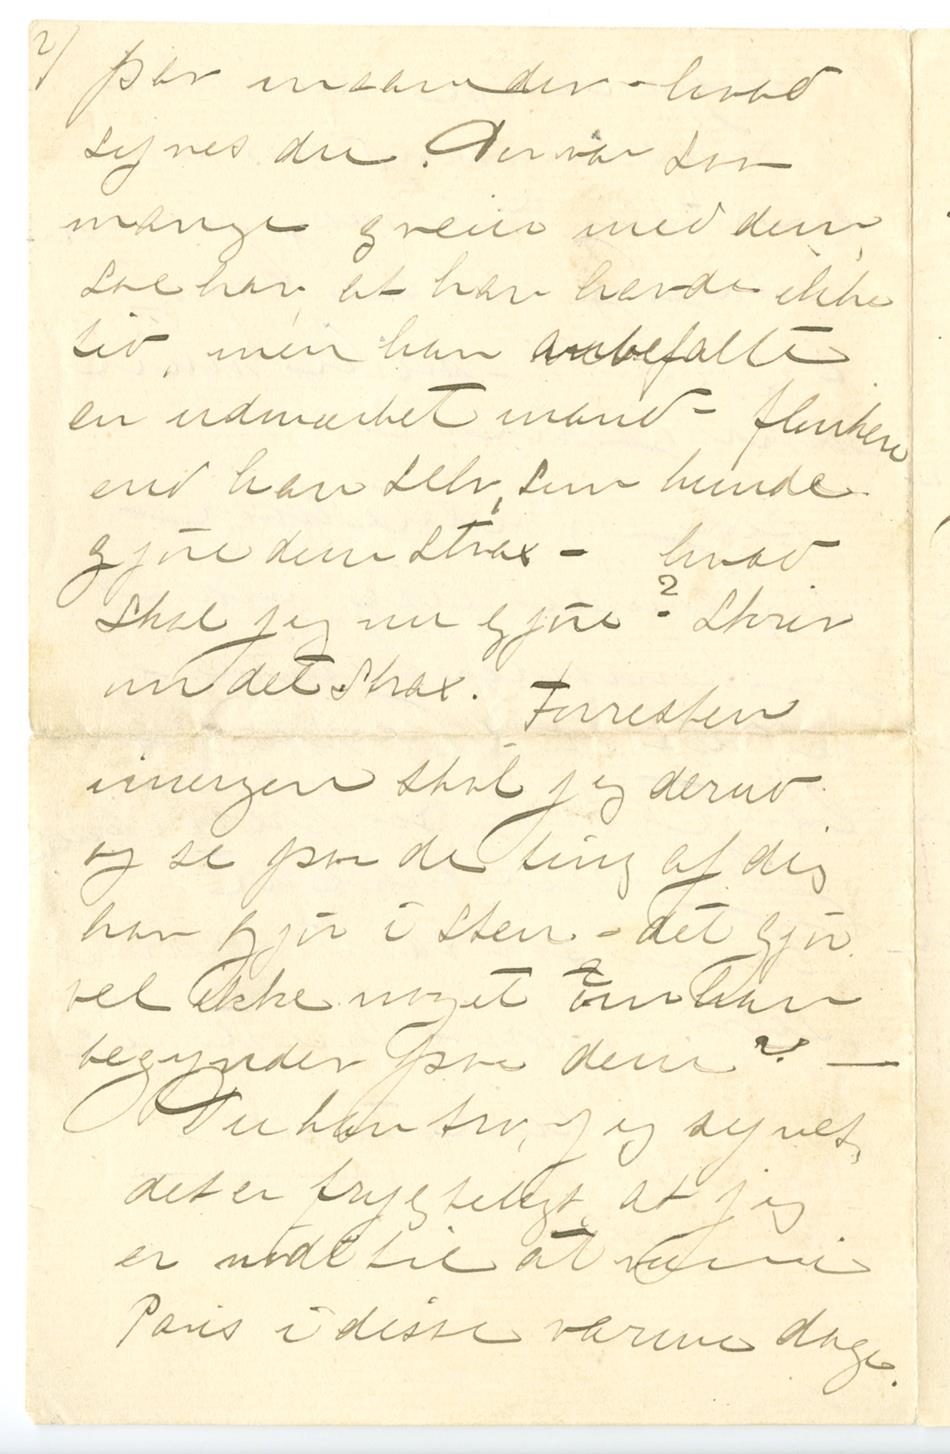 2/
par maaneder - hvad
synes du. Der var saa
mange greier med dem,
sae han, at han havde ikke
tid, men han anbefalte
en udmærket mand - flinkere
end han selv, som kunde
gjøre dem strax - hvad
skal jeg nu gjøre? Skriv
om det strax. Forresten
imorgen skal jeg derud
og se paa de ting af dig
han gjør i sten. - det gjør
vel ikke noget om han
begynder paa dem? —
Du kan tro, jeg synes,
det er frygteligt, at jeg
er nødt til at være i
Paris i disse varme dage.